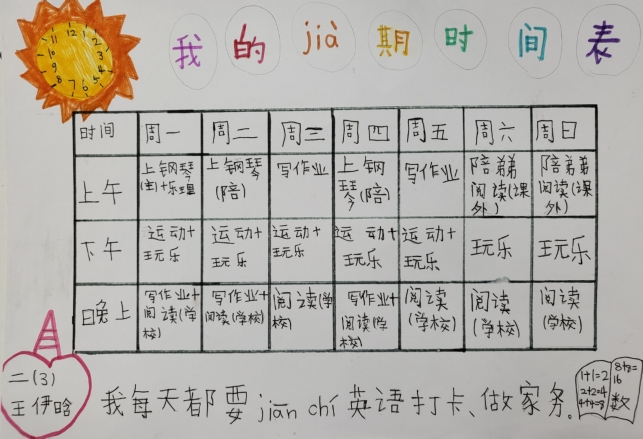 我的jià期时间表
12 1 2 3 4 5 6 7 8 9 10 11
时间 周一 周二 周三 周四 周五 周六 周日
上午 上钢琴(主)+乐理 上钢琴(陪) 写作业 上钢琴(陪) 写作业 陪弟弟阅读(课外) 陪弟弟阅读(课外)
下午 运动+玩乐 运动+玩乐 运动+玩乐 运动+玩乐 运动+玩乐 玩乐 玩乐
晚上 写作业+阅读(学校) 写作业+阅读(学校) 阅读(学校) 写作业+阅读(学校) 阅读(学校) 阅读(学校) 阅读(学校)
二(3)
王伊晗
我每天都要jiān chí英语打卡、做家务。
1+1=2
2+2=4
4+4=8
8+8=
16
数